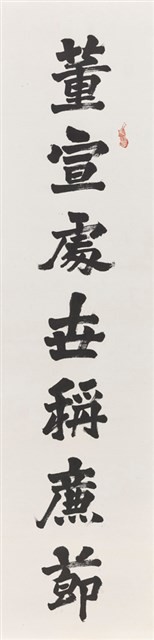 董宣處世稱廉節